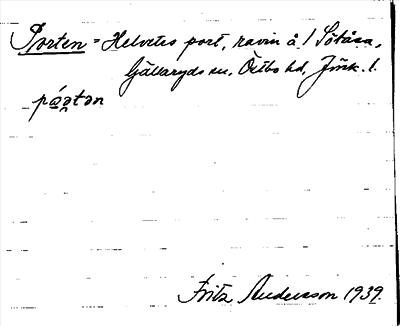 Porten = Helvetes port, ravin å 1 Sötåsa,
Gällaryds sn, Östbo hd, Jönk. l.
pɷ́ətən
Fritz Andersson 1939.